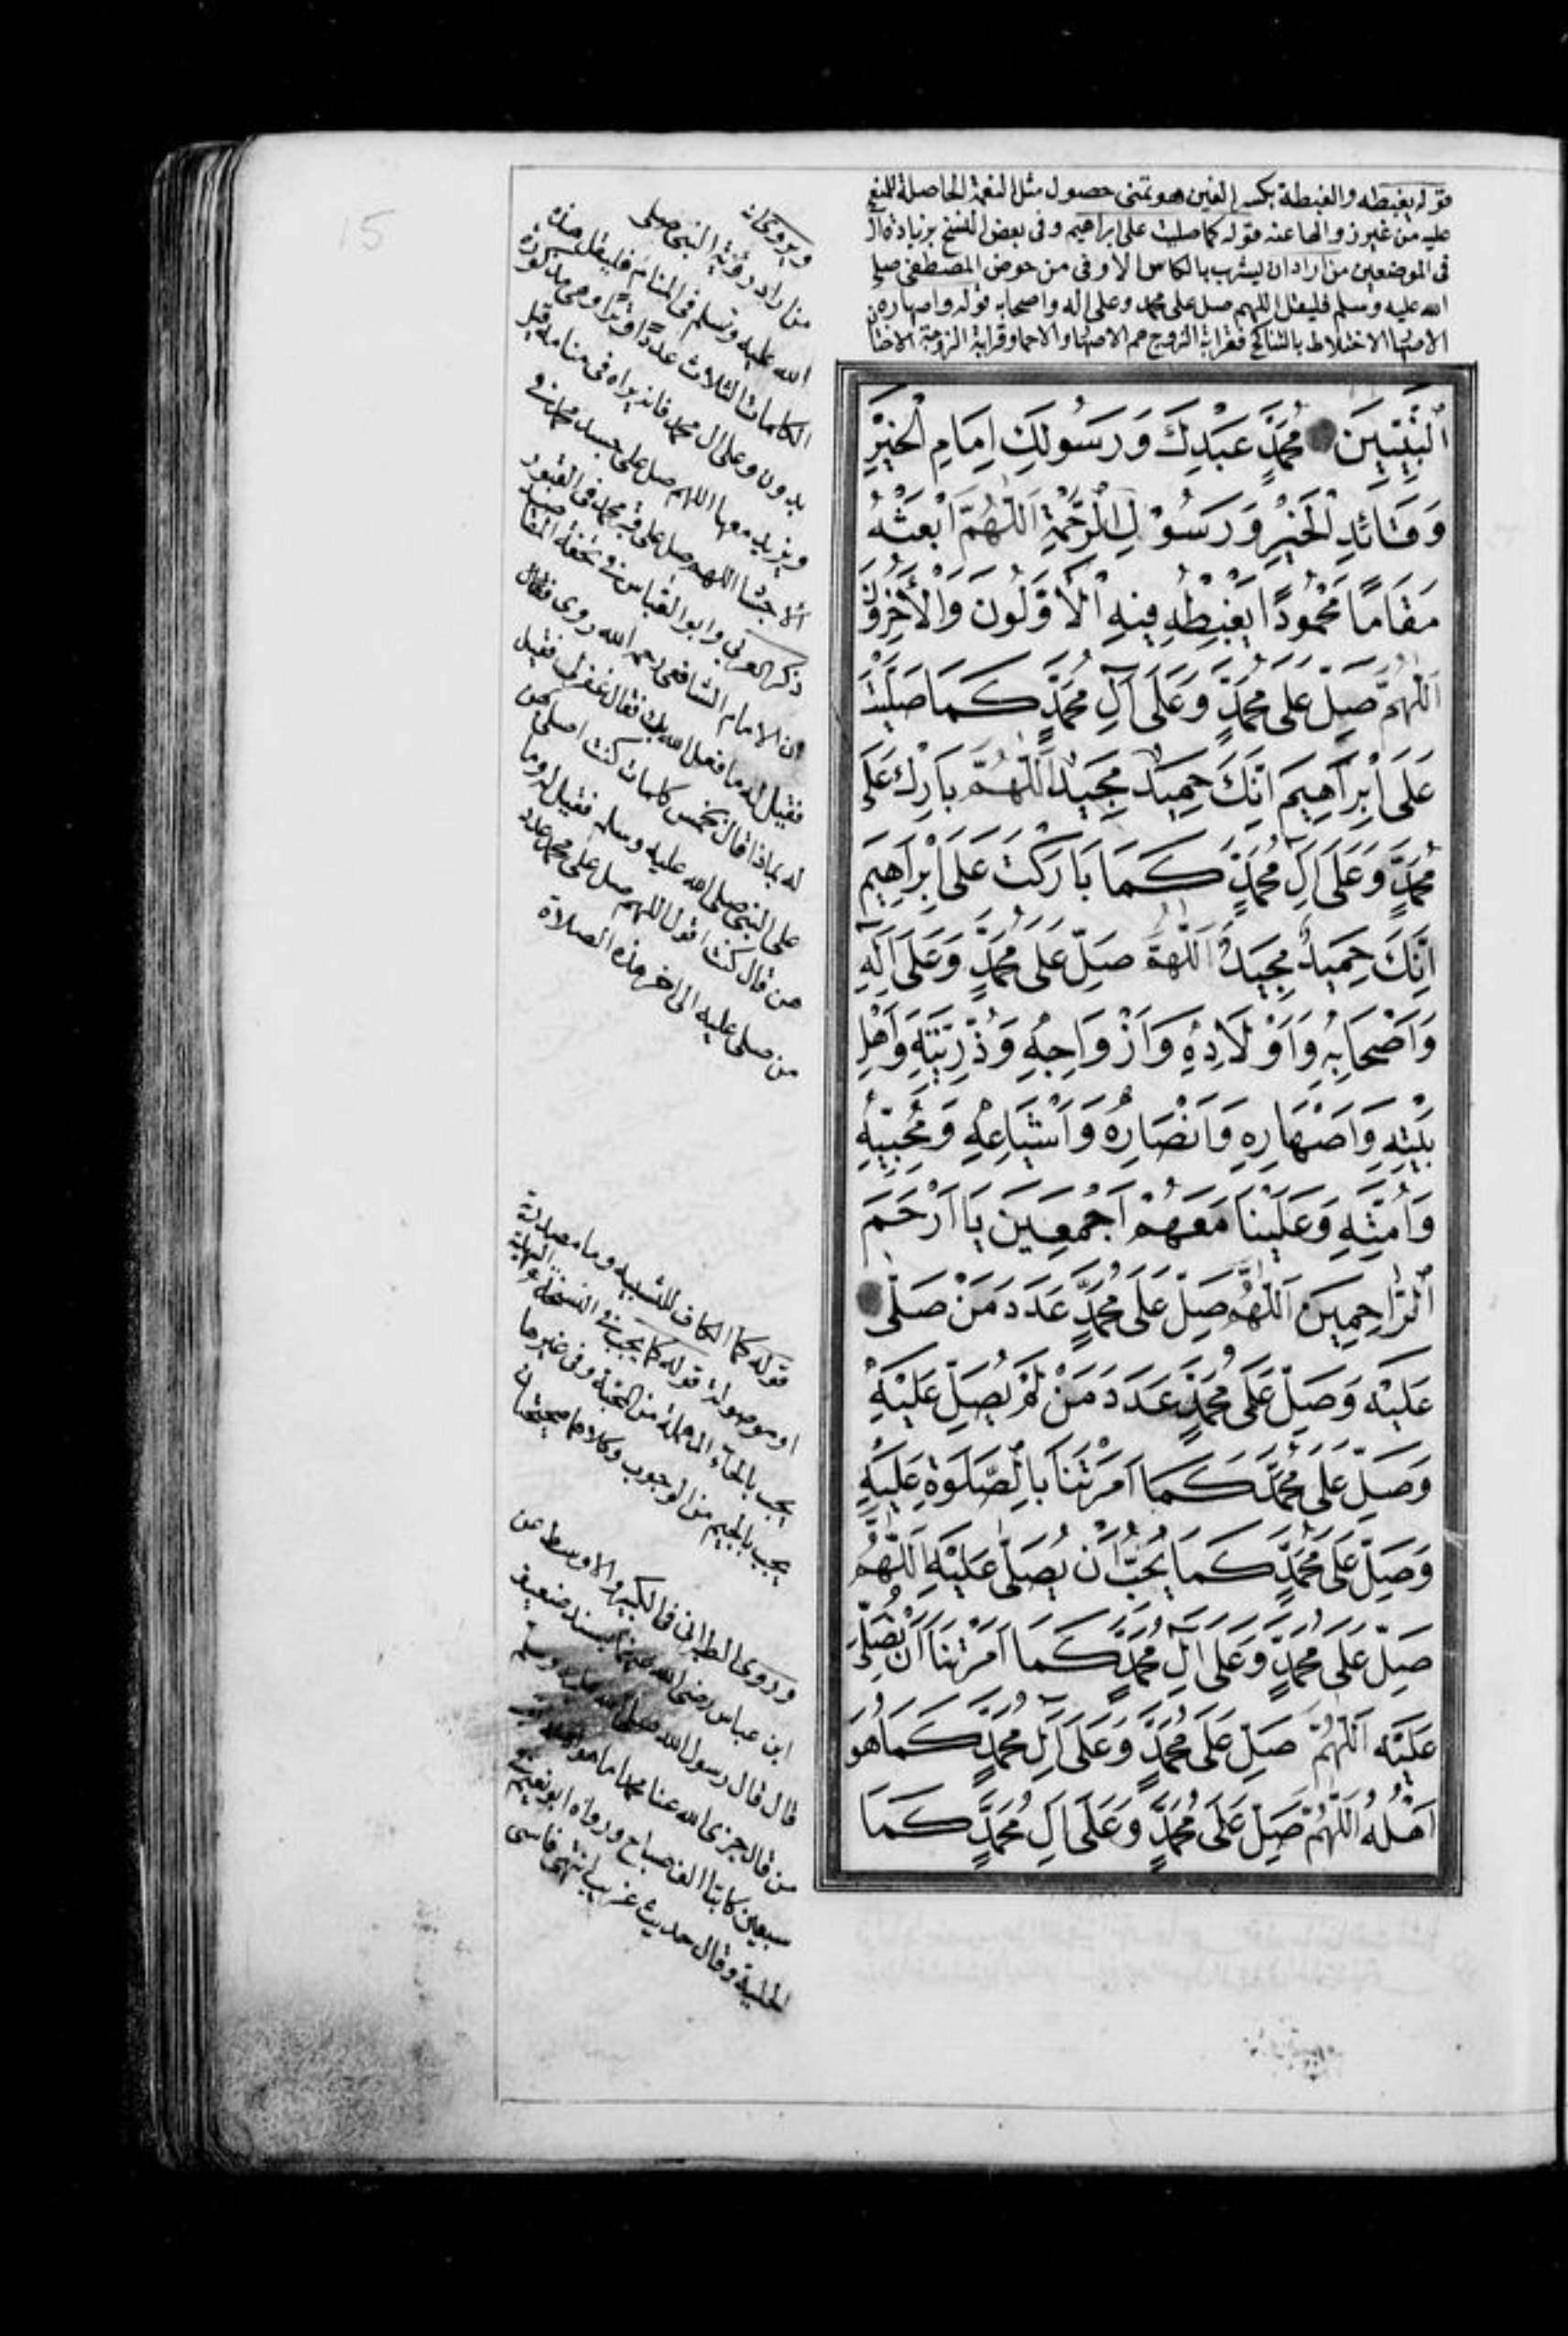 15
قوله يغبطه والغبطة بكسر الغين هو تمنى حصول مثل النعمة الحاصلة للمنعم
عليه من غير زوالها عنه قوله كما صليت على ابراهيم وفى بعض النسخ بزيادة ال
فى الموضعين من اراد ان يشرب بالكاس الاوفى من حوض المصطفى صلى
الله عليه وسلم فليقل اللهم صل على محمد وعلى اله واصحابه قوله واصهاره
الاختلاط بالتناكح فقرابة الزوج هم الاحما وقرابة الزوجة
اَلنَّبِيِّينَ مُحَمَّدٍ عَبْدِكَ وَرَسُولِكَ اِمَامِ الْخَيْرِ
وَقَائِدِ الْخَيْرِ وَرَسُولِ الرَّحْمَةِ اَللّٰهُمَّ ابْعَثْهُ
مَقَامًا مَحْمُودًا يَغْبِطُهُ فِيهِ الْأَوَّلُونَ وَالْأَخِرُونَ
اَللّٰهُمَّ صَلِّ عَلَى مُحَمَّدٍ وَعَلَى آلِ مُحَمَّدٍ كَمَا صَلَّيْتَ
عَلَى اِبْرَاهِيمَ اِنَّكَ حَمِيدٌ مَجِيدٌ اَللّٰهُمَّ بَارِكْ عَلَى
مُحَمَّدٍ وَعَلَى اٰلِ مُحَمَّدٍ كَمَا بَارَكْتَ عَلَى اِبْرَاهِيمَ
اِنَّكَ حَمِيدٌ مَجِيدٌ اَللّٰهُمَّ صَلِّ عَلَى مُحَمَّدٍ وَعَلَى اٰلِهِ
وَاَصْحَابِهِ وَاَوْلَادِهِ وَاَزْوَاجِهِ وَذُرِّيَّتِهِ وَاَهْلِ
بَيْتِهِ وَاَصْهَارِهِ وَاَنْصَارِهِ وَاَشْيَاعِهِ وَمُحِبِّيهِ
وَاُمَّتِهِ وَعَلَيْنَا مَعَهُمْ اَجْمَعِينَ يَا اَرْحَمَ
الرَّاحِمِينَ اَللّٰهُمَّ صَلِّ عَلَى مُحَمَّدٍ عَدَدَ مَنْ صَلَّى
عَلَيْهِ وَصَلِّ عَلَى مُحَمَّدٍ عَدَدَ مَنْ لَمْ يُصَلِّ عَلَيْهِ
وَصَلِّ عَلَى مُحَمَّدٍ كَمَا اَمَرْتَنَا بِالصَّلٰوةِ عَلَيْهِ
وَصَلِّ عَلَى مُحَمَّدٍ كَمَا يُحِبُّ اَنْ يُصَلَّى عَلَيْهِ اَللّٰهُمَّ
صَلِّ عَلَى مُحَمَّدٍ وَعَلَى اٰلِ مُحَمَّدٍ كَمَا اَمَرْتَنَا اَنْ نُصَلِّىَ
عَلَيْهِ اَللّٰهُمَّ صَلِّ عَلَى مُحَمَّدٍ وَعَلَى اٰلِ مُحَمَّدٍ كَمَا هُوَ
اَهْلُهُ اَللّٰهُمَّ صَلِّ عَلَى مُحَمَّدٍ وَعَلَى اٰلِ مُحَمَّدٍ كَمَا
من اراد رؤية النبى صلى
الله عليه وسلم فى المنام فليقل هذه
الكلمات الثلاث عددا وترا وهى مذكورة
بدون وعلى ال محمد فانه يراه فى منامه قيل
ويزيد معها اللهم صل على جسد محمد فى
اللهم صل على قبر محمد فى القبور
ذكر وابو العباس فى تحفة
ان الامام الشافعى رحمه الله روى فقال
فقيل له ما فعل الله بك فقال غفر لى فقيل
له بماذا قال بخمس كلمات كنت اصلى بهن
على النبى صلى الله عليه وسلم فقيل له وما
هن قال كنت اقول اللهم صل على محمد عدد
من صلى عليه الى اخر هذه الصلاة
قوله كما الكاف للتشبيه وما مصدرية
او موصولة قوله كما يحب فى النسخة
يحب بالحاء المهملة من المحبة وفى غيرها
يجب بالجيم من الوجوب وكلاهما صحيحان
وروى الطبرانى فى الكبير والاوسط عن
ابن عباس رضى الله عنهما بسند ضعيف
قال قال رسول الله صلى الله عليه وسلم
من قال جزى الله عنا محمدا ما هو اهله
سبعين كاتبا الف صباح ورواه ابو نعيم فى
الحلية وقال حديث غريب انتهى فاسى